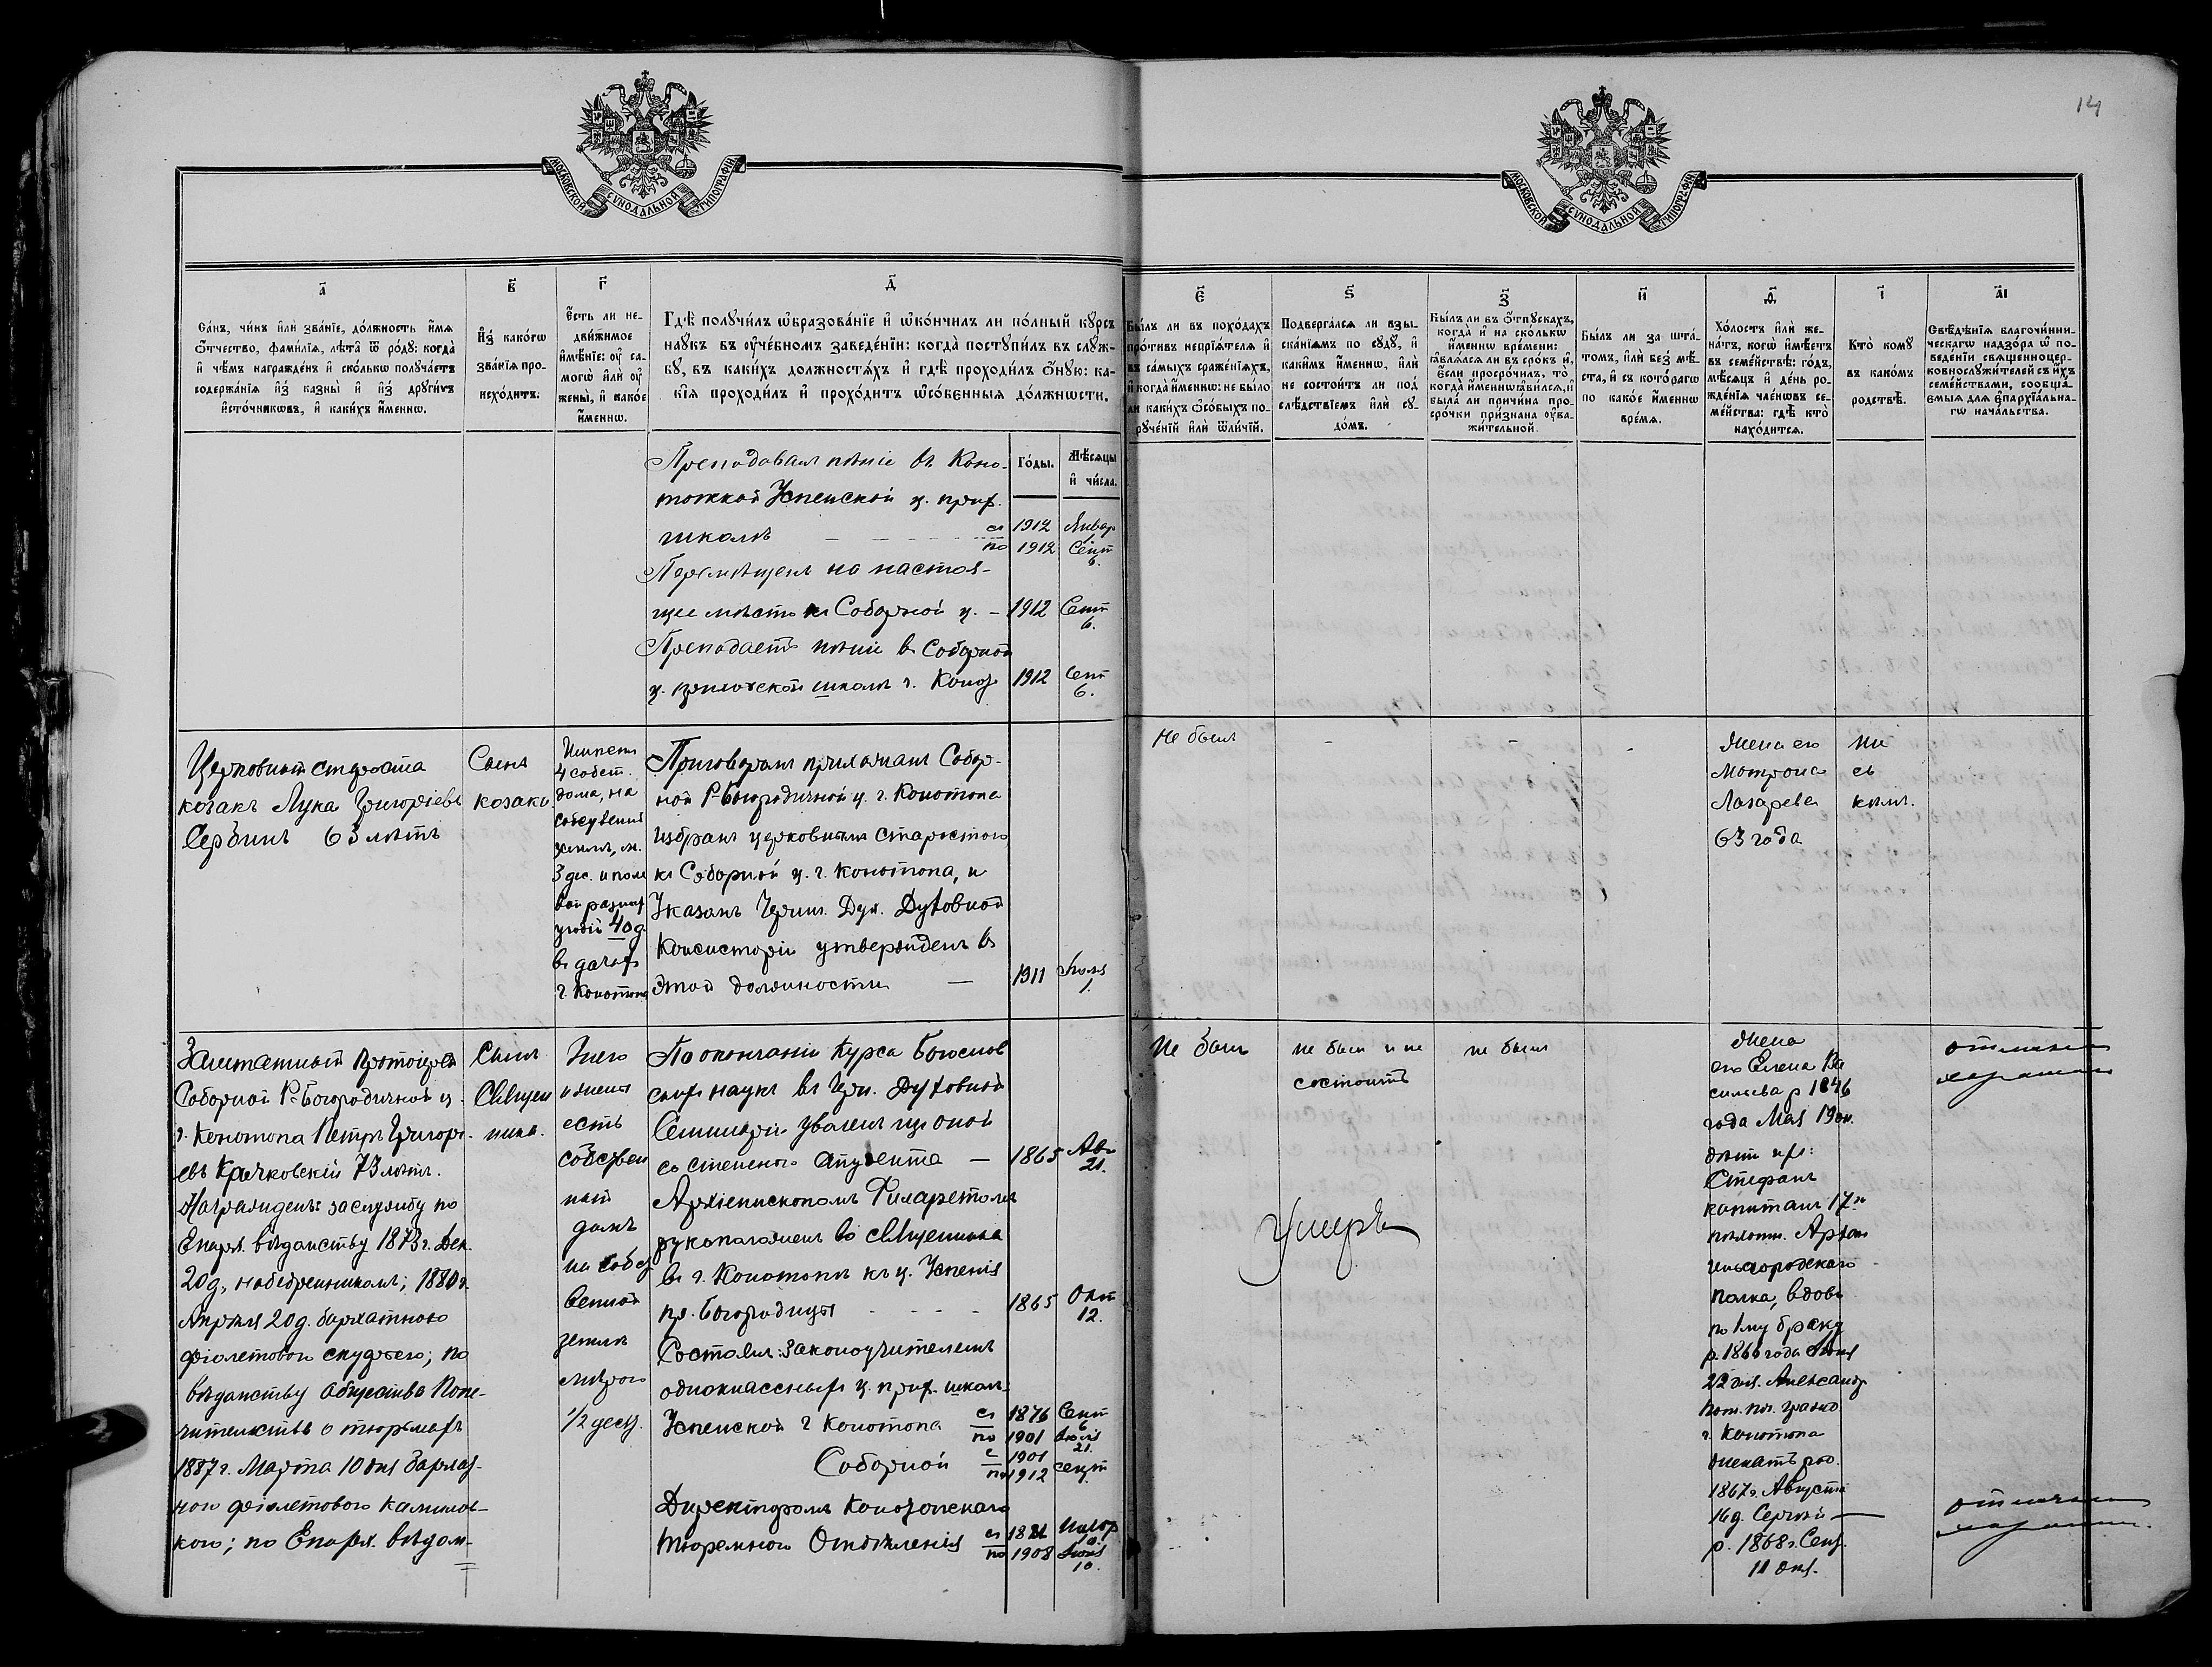 14
МОСКОВСКОЙ СѴНОДАЛЬНОЙ ТИПОГРАФІИ
МОСКОВСКОЙ СѴНОДАЛЬНОЙ ТИПОГРАФІИ
а҃
Са́нъ, чи́нъ и҆лѝ зва́нїе, до́лжность и҆́мѧ
ѻ҆́тчество, фами́лїѧ, лѣ́та ѿ ро́дꙋ: когда̀
и҆ чѣ́мъ награжде́нъ и҆ ско́лькѡ полꙋча́етъ
содержа́нїѧ и҆з̾ казны̀ и҆ и҆з̾ дрꙋги́хъ
и҆сто́чникѡвъ, и҆ каки́хъ и҆́меннѡ.
в҃
И҆з̾ како́гѡ
зва́нїѧ про-
исхо́дитъ.
г҃
Є҆́сть ли не-
дви́жимое
и҆мѣ́нїе: ᲂу҆ са-
могѡ̀ и҆лѝ ᲂу҆
жены̀, и҆ како́е
и҆́меннѡ.
д҃
Гдѣ̀ полꙋчи́лъ ѡ҆бразова́нїе и҆ ѡ҆ко́нчилъ ли по́лный кꙋ́рсъ
наꙋ́къ въ ᲂу҆че́бномъ заведе́нїи: когда̀ постꙋпи́лъ въ слꙋ́ж-
бꙋ, въ каки́хъ до́лжностѧхъ и҆ гдѣ̀ проходи́лъ ѻ҆́нꙋю: ка-
кі́ѧ проходи́лъ и҆ прохо́дитъ ѡ҆со́бенныѧ до́лжнѡсти.
Го́ды.
Мѣ́сѧцы
и҆ чи́сла.
є҃
Бы́лъ ли въ похо́дахъ
про́тивъ непрїѧ́телѧ и҆
въ са́мыхъ сраже́нїѧхъ,
и҆ когда̀ и҆́меннѡ: не бы́ло
ли каки́хъ ѻ҆со́быхъ по-
рꙋче́нїй и҆лѝ ѿли́чїй.
ѕ҃
Подверга́лсѧ ли взы-
ска́нїѧмъ по сꙋдꙋ̀, и҆
каки́мъ и҆́меннѡ, и҆лѝ
не состои́тъ ли под̾
слѣ́дствїемъ и҆лѝ сꙋ-
до́мъ.
з҃
Бы́лъ ли въ ѻ҆́тпꙋскахъ,
когда̀ и҆ на ско́лькѡ
и҆́меннѡ вре́мени:
ꙗ҆влѧ́лсѧ ли въ сро́къ и҆,
є҆́сли просро́чилъ, то
когда̀ и҆́меннѡ ꙗ҆ви́лсѧ, и҆
была́ ли причи́на про-
сро́чки при́знана ᲂу҆ва-
жи́тельной.
и҃
Бы́лъ ли за шта́-
томъ, и҆лѝ без̾ мѣ́-
ста, и҆ съ кото́рагѡ
по како́е и҆́меннѡ
вре́мѧ.
ѳ҃
Хо́лостъ и҆лѝ же-
на́тъ, когѡ̀ и҆мѣ́етъ
въ семе́йствѣ: го́дъ,
мѣ́сѧцъ и҆ де́нь ро-
жде́нїѧ чле́нѡвъ се-
ме́йства: гдѣ̀ кто̀
нахо́дитсѧ.
і҃
Кто̀ комꙋ̀
въ како́мъ
родствѣ̀.
а҃і
Свѣ́дѣнїѧ благочи́нни-
ческагѡ надзо́ра ѡ҆ по-
веде́нїи свѧщенноцер-
ковнослꙋжи́телей съ и҆́хъ
семе́йствами, сообща́-
ємыѧ длѧ є҆пархїа́льна-
гѡ нача́льства.
Преподавалъ пѣніе въ Коно-
топской Успенской ц. прих.
школѣ съ 1912 Январ 1
по 1912 Сент 6.
Перемѣщенъ на настоя-
щее мѣсто къ Соборной ц. – 1912 Сент 6.
Преподаетъ пѣніе въ Соборной
ц. приходской школѣ г. Коноt 1912 Сент 6.
Церковный староста
козакъ Лука Григоріевъ
Сербинъ 63 лѣтъ
Сынъ
козака.
Имѣетъ
4 собст.
дома, на
собственной
землѣ,
3 дес. и поле
вой разныхъ
угодій 40 д
въ дачахъ
г. Конотопа
Приговоромъ прихожанъ Собор-
ной Р-Богородичной ц. г. Конотопа
избранъ церковнымъ старостою
къ Соборной ц. г. Конотопа, и
Указомъ Черниг. Дух. Духовной
Консисторіи утвержденъ въ
этой должности — 1911 Іюля 1.
Не былъ – – –
Жена его
Матрона
Лазарева
63 года
Ни
съ
кѣмъ.
Заштатный Протоіерей
Соборной Р-Богородичной ц.
г. Конотопа Петръ Григорі-
евъ Крачковскій 73 лѣтъ.
Награжденъ: за службу по
Епарх. вѣдомству 1873 г. Дек.
20 д. набедренникомъ; 1880 г.
Апрѣля 20 д. бархатною
фіолетовою скуфьею; по
вѣдомству Общества Попе-
чительства о тюрьмахъ
1887 г. Марта 10 дня бархат-
ною фіолетовою камилав-
кою; по Епарх. вѣдом-
Сынъ
Священ
ника.
У него
имѣется
есть
собствен
ный
домъ
на собст
венной
землѣ
мѣрою
1/2 десят.
По окончаніи Курса Богослов
скихъ наукъ въ Черн. Духовной
Семинаріи уволенъ изъ оной
со степенью студента — 1865 Авг 21.
Архіепископомъ Филаретомъ
рукоположенъ во священника
въ г. Конотопъ къ ц. Успенія
пр. Богородицы - - - - 1865 Окт 12.
Состоялъ: Законоучителемъ
одноклассныхъ ц. прих. школъ
Успенской г Конотопа съ 1876 Сент 6
по 1901 Іюля 21.
Соборной с 1901
по 1912 сент
Директоромъ Конотопскаго
Тюремнаго Отдѣленія съ 1881
по 1908 10.
Не былъ
не былъ и не
состоитъ
не былъ
Умеръ
Жена
его Елена Ва
сильева р 1846
года Мая 19 дн.
дѣти ихъ:
Стефанъ
капитанъ 17-го
пѣхотн. Архан
гельгородскаго
полка, вдовъ
по 1му браку
р. 1866 года Іюня
22 дня. Александр
Пот. поч. гражд.
г. Конотопа
1867 г. Августа
16 д. Сергѣй —
р. 1868 г. Сент.
11 дня.
отлично
хорошаго
отлично
хорошаго.